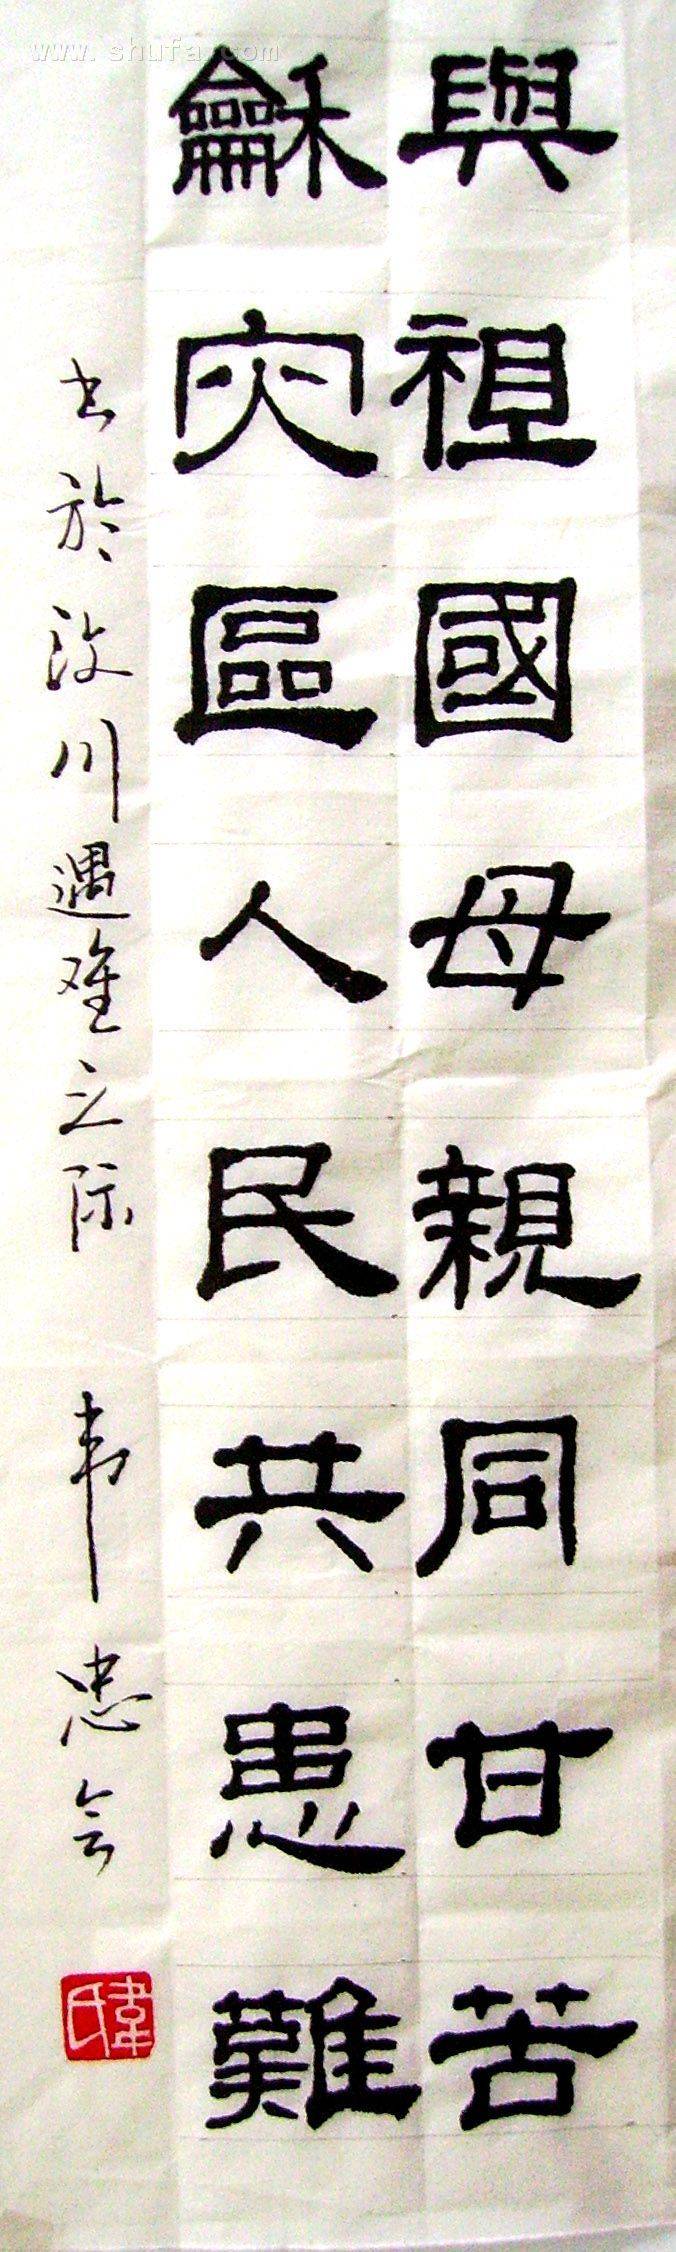 www.shufa.com
與祖國母親同甘苦
龢灾區人民共患難
书於汶川遇难之际
韦忠会
韋氏